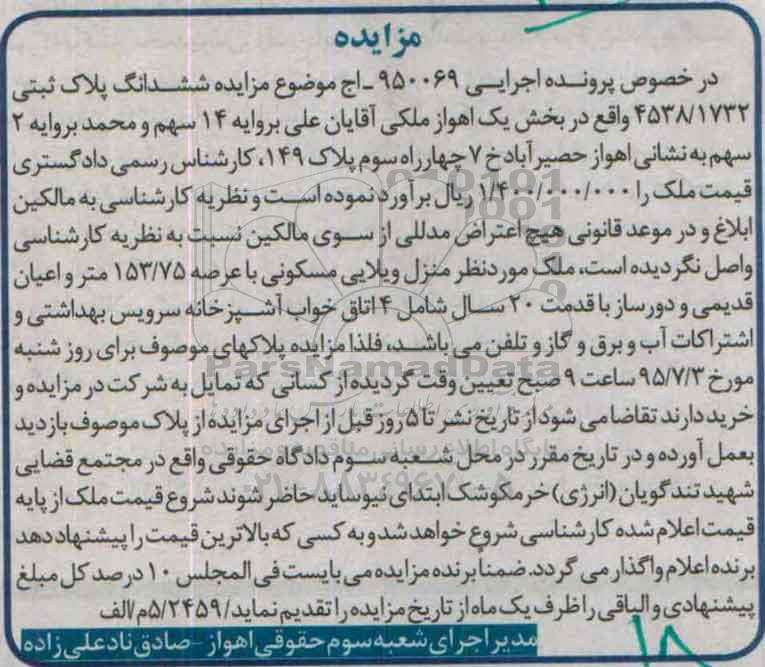 مزایده
در خصوص پرونده اجرایی ۹۵۰۰۶۹ ـ اج موضوع مزایده ششدانگ پلاک ثبتی
۴۵۳۸/۱۷۳۲ واقع در بخش یک اهواز ملکی آقایان علی بروایه ۱۴ سهم و محمد بروایه ۲
سهم به نشانی اهواز حصیرآباد خ ۷ چهارراه سوم پلاک ۱۴۹، کارشناس رسمی دادگستری
قیمت ملک را ۱/۴۰۰/۰۰۰/۰۰۰ ریال برآورد نموده است و نظریه کارشناسی به مالکین
ابلاغ و در موعد قانونی هیچ اعتراض مدللی از سوی مالکین نسبت به نظریه کارشناسی
واصل نگردیده است، ملک موردنظر منزل ویلایی مسکونی با عرصه ۱۵۳/۷۵ متر و اعیان
قدیمی و دورساز با قدمت ۲۰ سال شامل ۴ اتاق خواب آشپزخانه سرویس بهداشتی و
اشتراکات آب و برق و گاز و تلفن می باشد، فلذا مزایده پلاکهای موصوف برای روز شنبه
مورخ ۹۵/۷/۳ ساعت ۹ صبح تعیین وقت گردیده از کسانی که تمایل به شرکت در مزایده و
خرید دارند تقاضا می شود از تاریخ نشر تا ۵ روز قبل از اجرای مزایده از پلاک موصوف بازدید
بعمل آورده و در تاریخ مقرر در محل شعبه سوم دادگاه حقوقی واقع در مجتمع قضایی
شهید تندگویان (انرژی) خرمکوشک ابتدای نیوساید حاضر شوند شروع قیمت ملک از پایه
قیمت اعلام شده کارشناسی شروع خواهد شد و به کسی که بالاترین قیمت را پیشنهاد دهد
برنده اعلام واگذار می گردد. ضمناً برنده مزایده می بایست فی المجلس ۱۰ درصد کل مبلغ
پیشنهادی و الباقی را ظرف یک ماه از تاریخ مزایده را تقدیم نماید/ ۵/۲۴۵۹م/الف
مدیر اجرای شعبه سوم حقوقی اهواز - صادق نادعلی زاده
ParsNamadData
۱۸